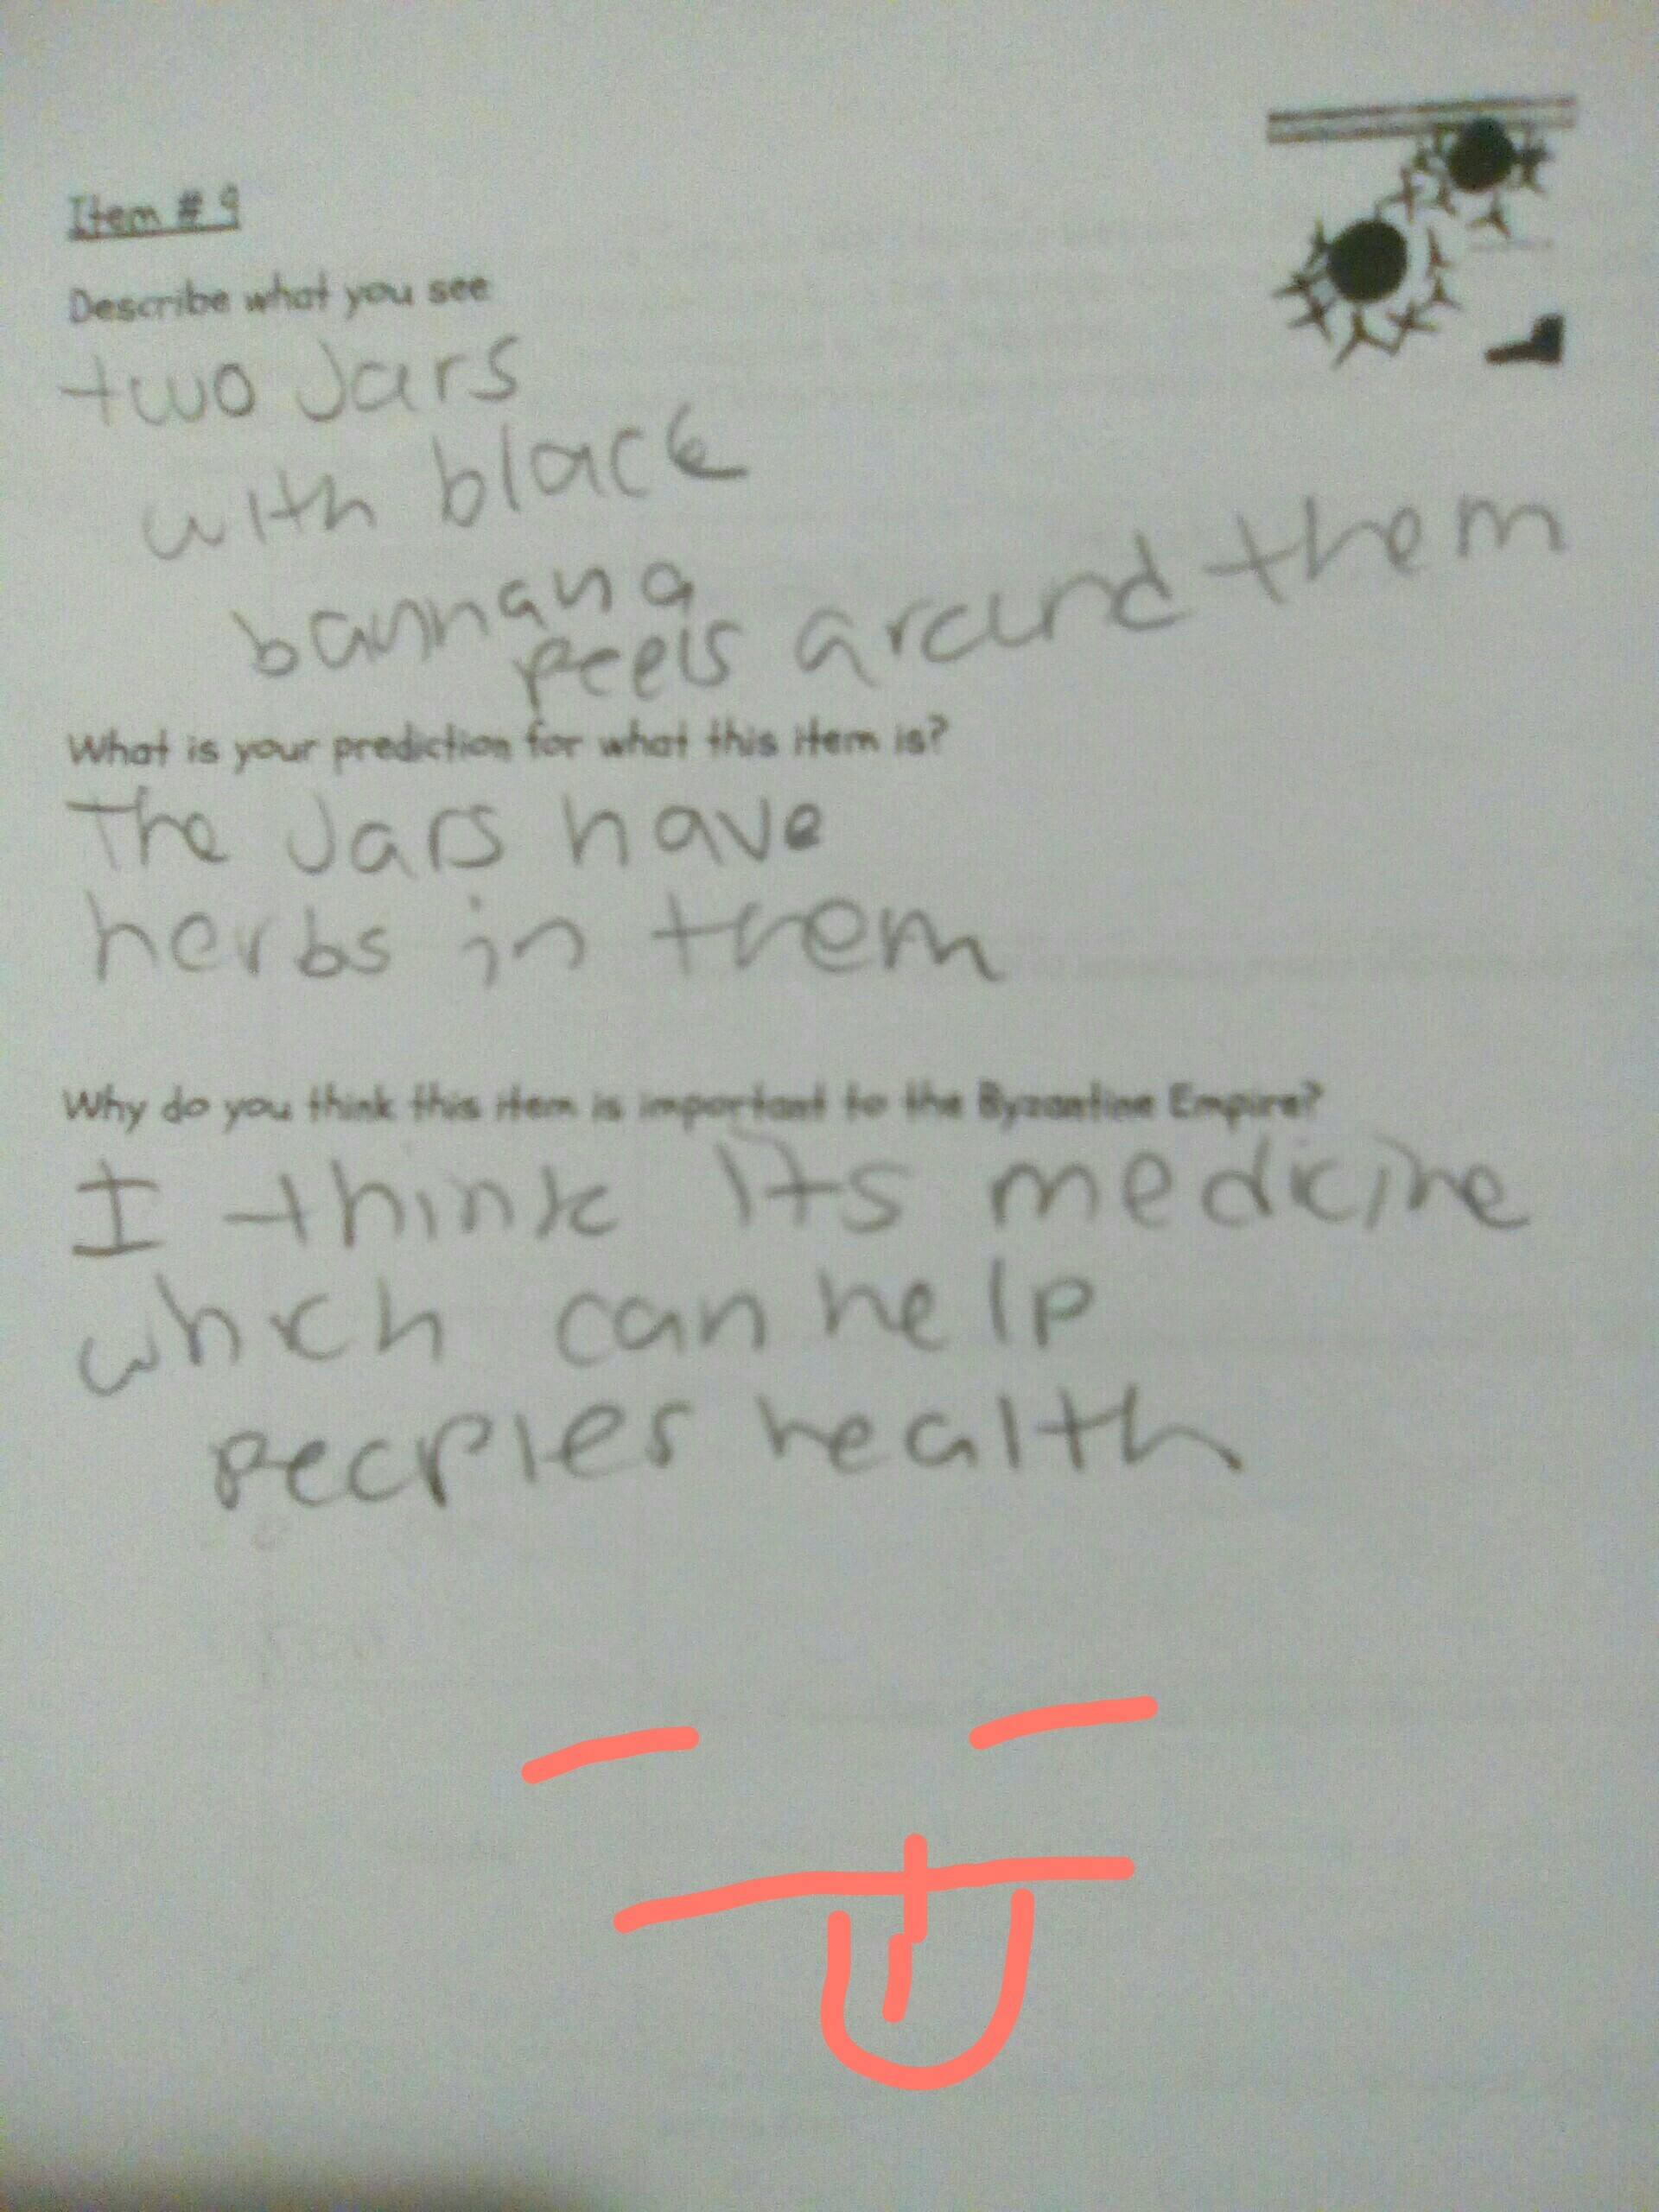 Item # 9
Describe what you see
two Jars
with black
bannana
peels around them
What is your prediction for what this item is?
The Jars have
herbs in them
Why do you think this item is important to the Byzantine Empire?
I think Its medicine
which can help
peoples health